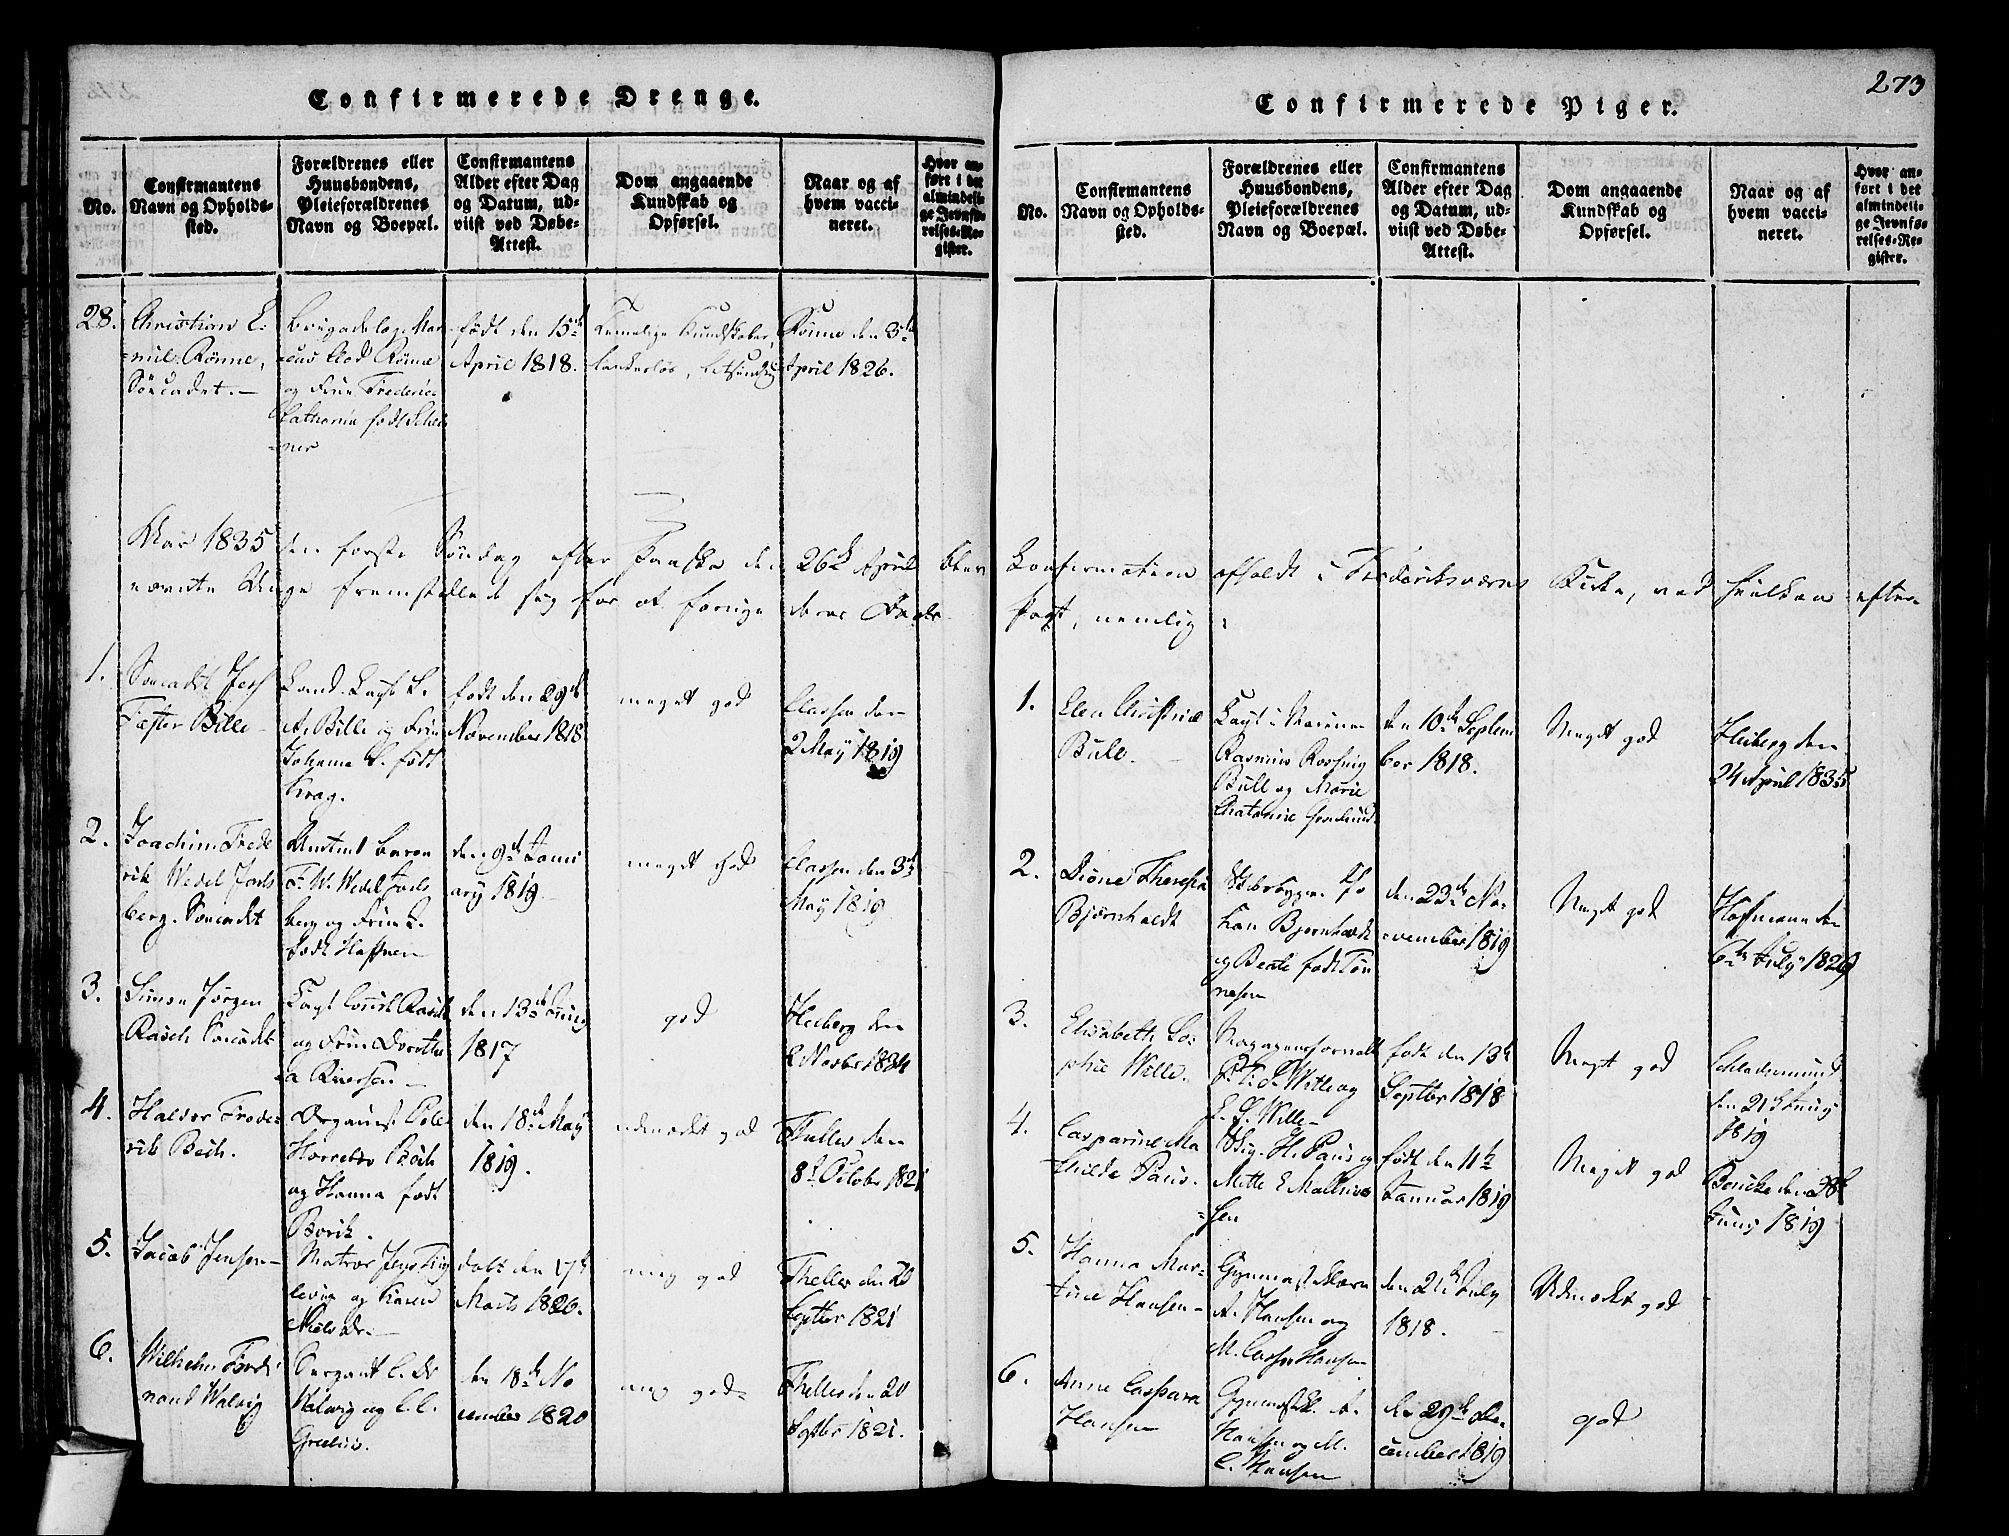 273
Confirmerede Drenge.
No.
Confirmantens
Navn og Opholds-
sted.
Forældrenes eller
Huusbondens,
Pleieforældrenes
Navn og Boepæl.
Confirmantens
Alder efter Dag
og Datum, ud-
viist ved Døbe-
Attest.
Dom angaaende
Kundskab og
Opførsel.
Naar og af
hvem vacci-
neret.
Hvor an-
ført i det
almindeli-
ge Jevnfø-
relses-Re-
gister.
28.
Christian E-
=mil Rönne,
Söecadet.-
Brigadelæge Mar-
cus Rönne
og Frue Frederice
Catharina født
ner
født den 15de
April 1818.
Kundskaber,
Rönne den 3die
April 1826.
Aar 1835 den første Søndag efter Paaske den 26de April blev
nævnte Unge fremstillede sig for at fornye deres Daabs
1.
Söecadet Jess
Fester Bille
A. Bille og Frue
Johanne født
Krag.
født den 29de
November 1818
meget god
Classen den
2 May 1819
2.
Joachim Frede
rik Wedel Jarls
berg. Söecadet
Baron
F. W. Wedel Jarls
berg og Frue
født Haffner
den 9de Janu
ary 1819
meget god
Classen den 3de
May 1819
3.
Simon Jörgen
Rasch Söecadet
Capt. Rasch
og Frue Dorothe
a Iversen
den 13de Juny
1817
god
Heiberg den
2 Novbr 1834
4.
Haldor Frede-
rik Böch.
Organist Ole
Horrebov Böch
og Hanna født
Borik.
den 18de May
1819.
udmærket god
Thelles den
8de October 1821
5.
Jacob Jensen
Matros Jens
og Karen
Nielsdr.
født den 17de
Marts 1820.
meg god
Thelles den 20
Septbr 1821
6.
Wilhelm Ferdi
nand Walvig
Sergeant C. D.
Walvig og C. C.
den 18de No
vember 1820
meg god
Thelles den 20
Septbr 1821.
Confirmerede Piger.
No.
Confirmantens
Navn og Opholds-
sted.
Forældrenes eller
Huusbondens,
Pleieforældrenes
Navn og Boepæl.
Confirmantens
Alder efter Dag
og Datum, ud-
viist ved Døbe-
Attest.
Dom angaaende
Kundskab og
Opførsel.
Naar og af
hvem vacci-
neret.
Hvor an-
ført i det
almindeli-
ge Jevnfø-
relses-Re-
gister.
Confirmation afholdt i Frederiksværns Kirke, ved hvilken efter-
Pagt, nemlig:
1.
Elen Christine
Bull.
Capt i Marinen
Rasmus Rossing
Bull og Marie
Chatarine
den 10de Septem
ber 1818.
Meget god
Heiberg den
24 April 1835
2.
Dione Theresia
Bjørnholdt
Skibsbygm. Jo
han Bjørnholdt
og Beate født Tøn
nesen
den 23de No-
vember 1819
Meget god
Hofmann den
6te July 1820
3.
Elisabeth So-
phie Wille.
Magazinforvalt
Wille og
Wille
født den 13de
Septbr 1818
Meget god
den 21de Juny
1819
4.
Casparine Ma
thilde Paus.
H. Paus og
Mette E Mathie
=sen
født den 11te
Januar 1819
Meget god
den 28de
Juny 1819
5.
Hanna Mar-
tine Hansen
Gymnastiklærer
A. Hansen og
M. Hansen
den 21de July
1818.
Udmærket god
6.
Anne Caspara
Hansen
Gymnastikl. A.
Hansen og M.
C. Hansen
den 29de De-
cember 1819
god